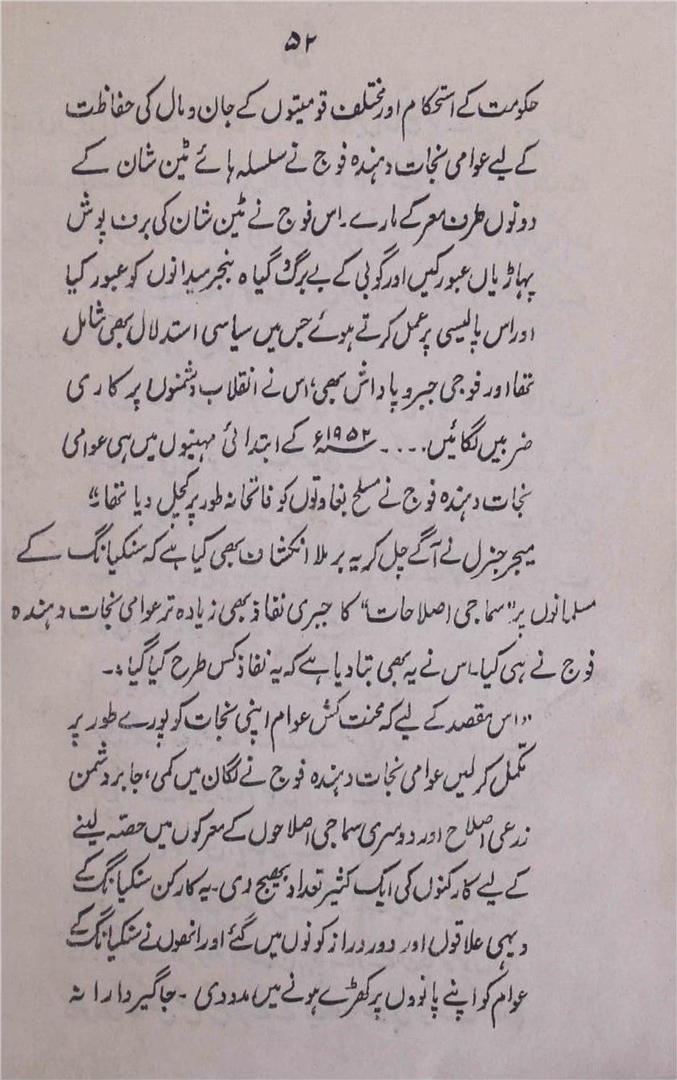 ۵۲
حکومت کے استحکام اور مختلف قومیتوں کے جان و مال کی حفاظت
کے لیے عوامی نجات دہندہ فوج نے سلسلہ ہائے ٹین شان کے
دونوں طرف معرکے مارے۔ اس فوج نے ٹین شان کی برف پوش
پہاڑیاں عبور کیں اور گوبی کے بے برگ و گیاہ بنجر میدانوں کو عبور کیا
اور اس پالیسی پر عمل کرتے ہوئے جس میں سیاسی استدلال بھی شامل
تھا اور فوجی جبر و پاداش بھی، اس نے انقلاب دشمنوں پر کاری
ضربیں لگائیں.... ۔ ۱۹۵۲ء کے ابتدائی مہینوں میں ہی عوامی
نجات دہندہ فوج نے مسلح بغاوتوں کو فاتحانہ طور پر کچل دیا تھا۔"
میجر جنرل نے آگے چل کر یہ برملا انکشاف بھی کیا ہے کہ سنکیانگ کے
مسلمانوں پر "سماجی اصلاحات" کا جبری نفاذ بھی زیادہ تر عوامی نجات دہندہ
فوج نے ہی کیا۔ اس نے یہ بھی بتا دیا ہے کہ یہ نفاذ کس طرح کیا گیا:۔
"اس مقصد کے لیے کہ محنت کش عوام اپنی نجات کو پورے طور پر
مکمل کر لیں عوامی نجات دہندہ فوج نے لگان میں کمی، جابر دشمن
زرعی اصلاح اور دوسری سماجی اصلاحوں کے معرکوں میں حصہ لینے
کے لیے کارکنوں کی ایک کثیر تعداد بھیج دی۔ یہ کارکن سنکیانگ کے
دیہی علاقوں اور دور دراز کونوں میں گئے اور انھوں نے سنکیانگ کے
عوام کو اپنے پانوؤں پر کھڑے ہونے میں مدد دی ۔ جاگیردارانہ